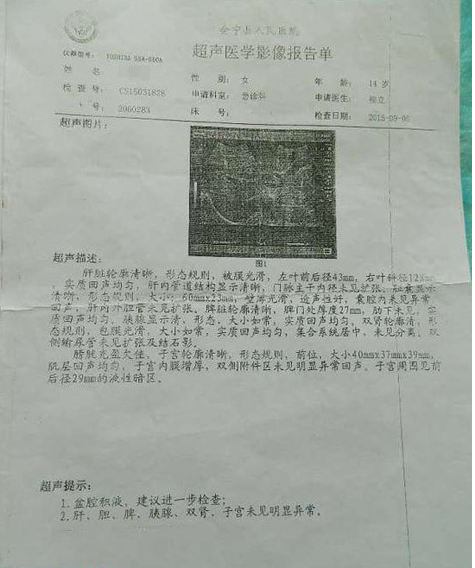 会宁县人民医院
超声医学影像报告单
仪器型号: TOSHIBA SSA-660A
姓 名
性 别: 女
年 龄: 14 岁
检 查 号: CS15031878
申请科室: 急诊科
申请医生:
号: 2060283
床 号:
检查日期: 2015-09-06
超声图片:
图1
超声描述:
肝脏轮廓清晰, 形态规则, 被膜光滑, 左叶前后径43mm, 右叶斜径
, 实质回声均匀, 肝内管道结构显示清晰, 门脉主干内径未见扩张、胆囊显示
清晰, 形态规则, 大小: 60mmx23mm, 壁薄光滑, 透声性好, 囊腔内未见异常
回声, 肝内外胆管未见扩张、脾脏轮廓清晰, 脾门处厚度27mm, 肋下未见, 实
质回声均匀、胰腺显示清, 形态、大小如常, 实质回声均匀、双肾轮廓清, 形
态规则, 包膜光滑, 大小如常, 实质回声均匀, 集合系统居中, 未见分离、双
侧输尿管未见扩张及结石影。
膀胱充盈欠佳, 子宫轮廓清晰, 形态规则, 前位, 大小40mmx37mmx39mm,
肌层回声均匀、子宫内膜增厚, 双侧附件区未见明显异常回声。子宫周围见前
后径29mm的液性暗区。
超声提示:
1. 盆腔积液, 建议进一步检查;
2. 肝、胆、脾、胰腺、双肾、子宫未见明显异常。